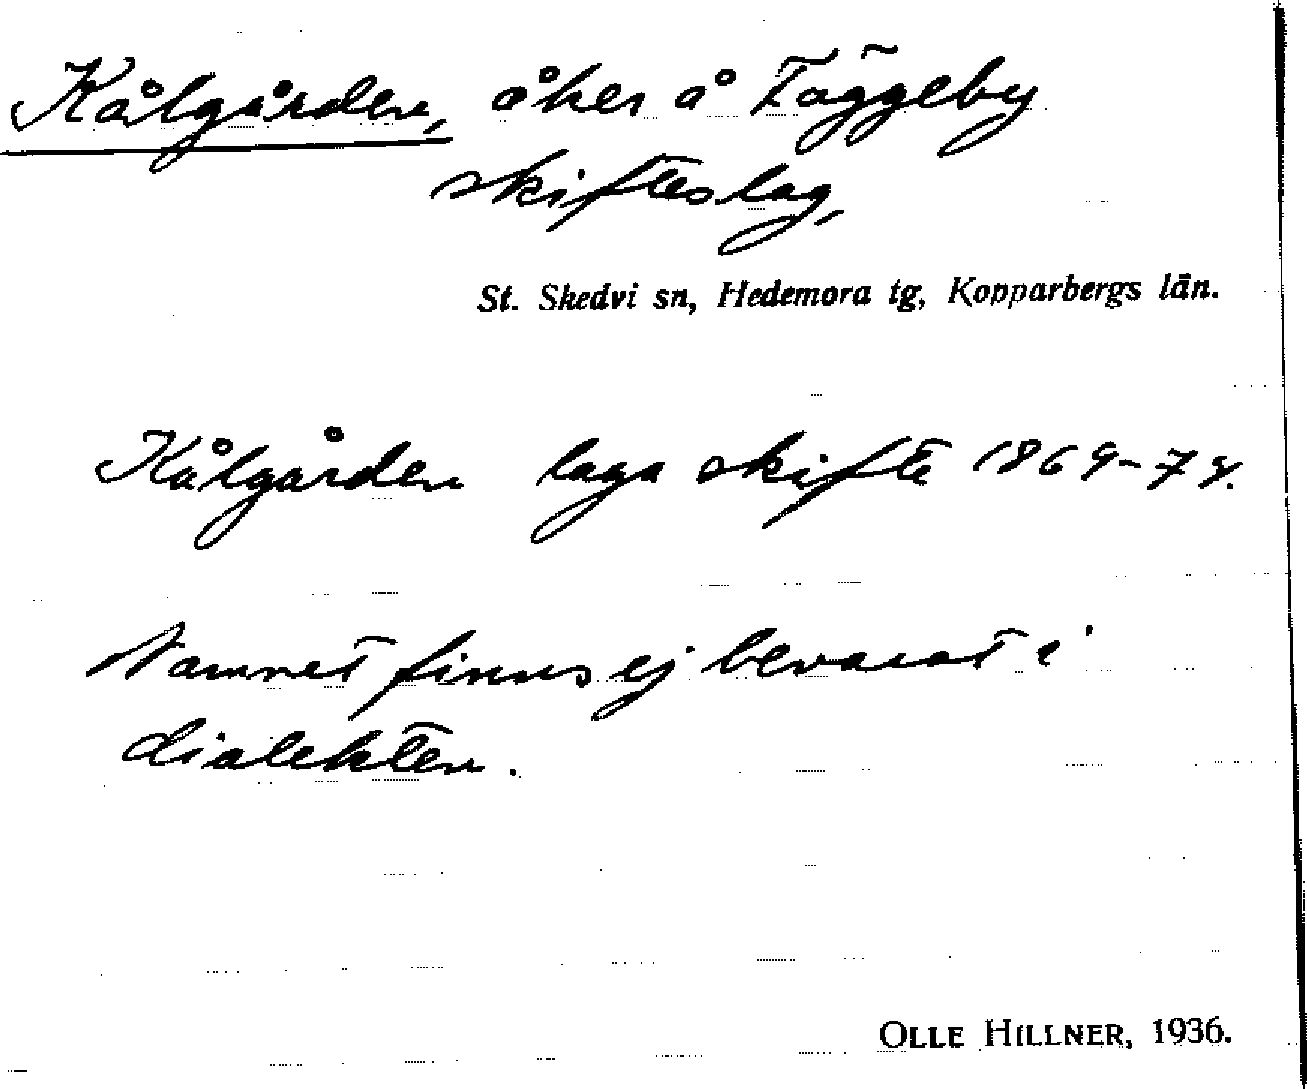 Kålgården, åker å Täggeby
skifteslag,
St. Skedvi sn, Hedemora tg, Kopparbergs län.
Kålgården laga skifte 1869-74.
Namnet finns ej bevarat i
dialekten.
OLLE HILLNER, 1936.